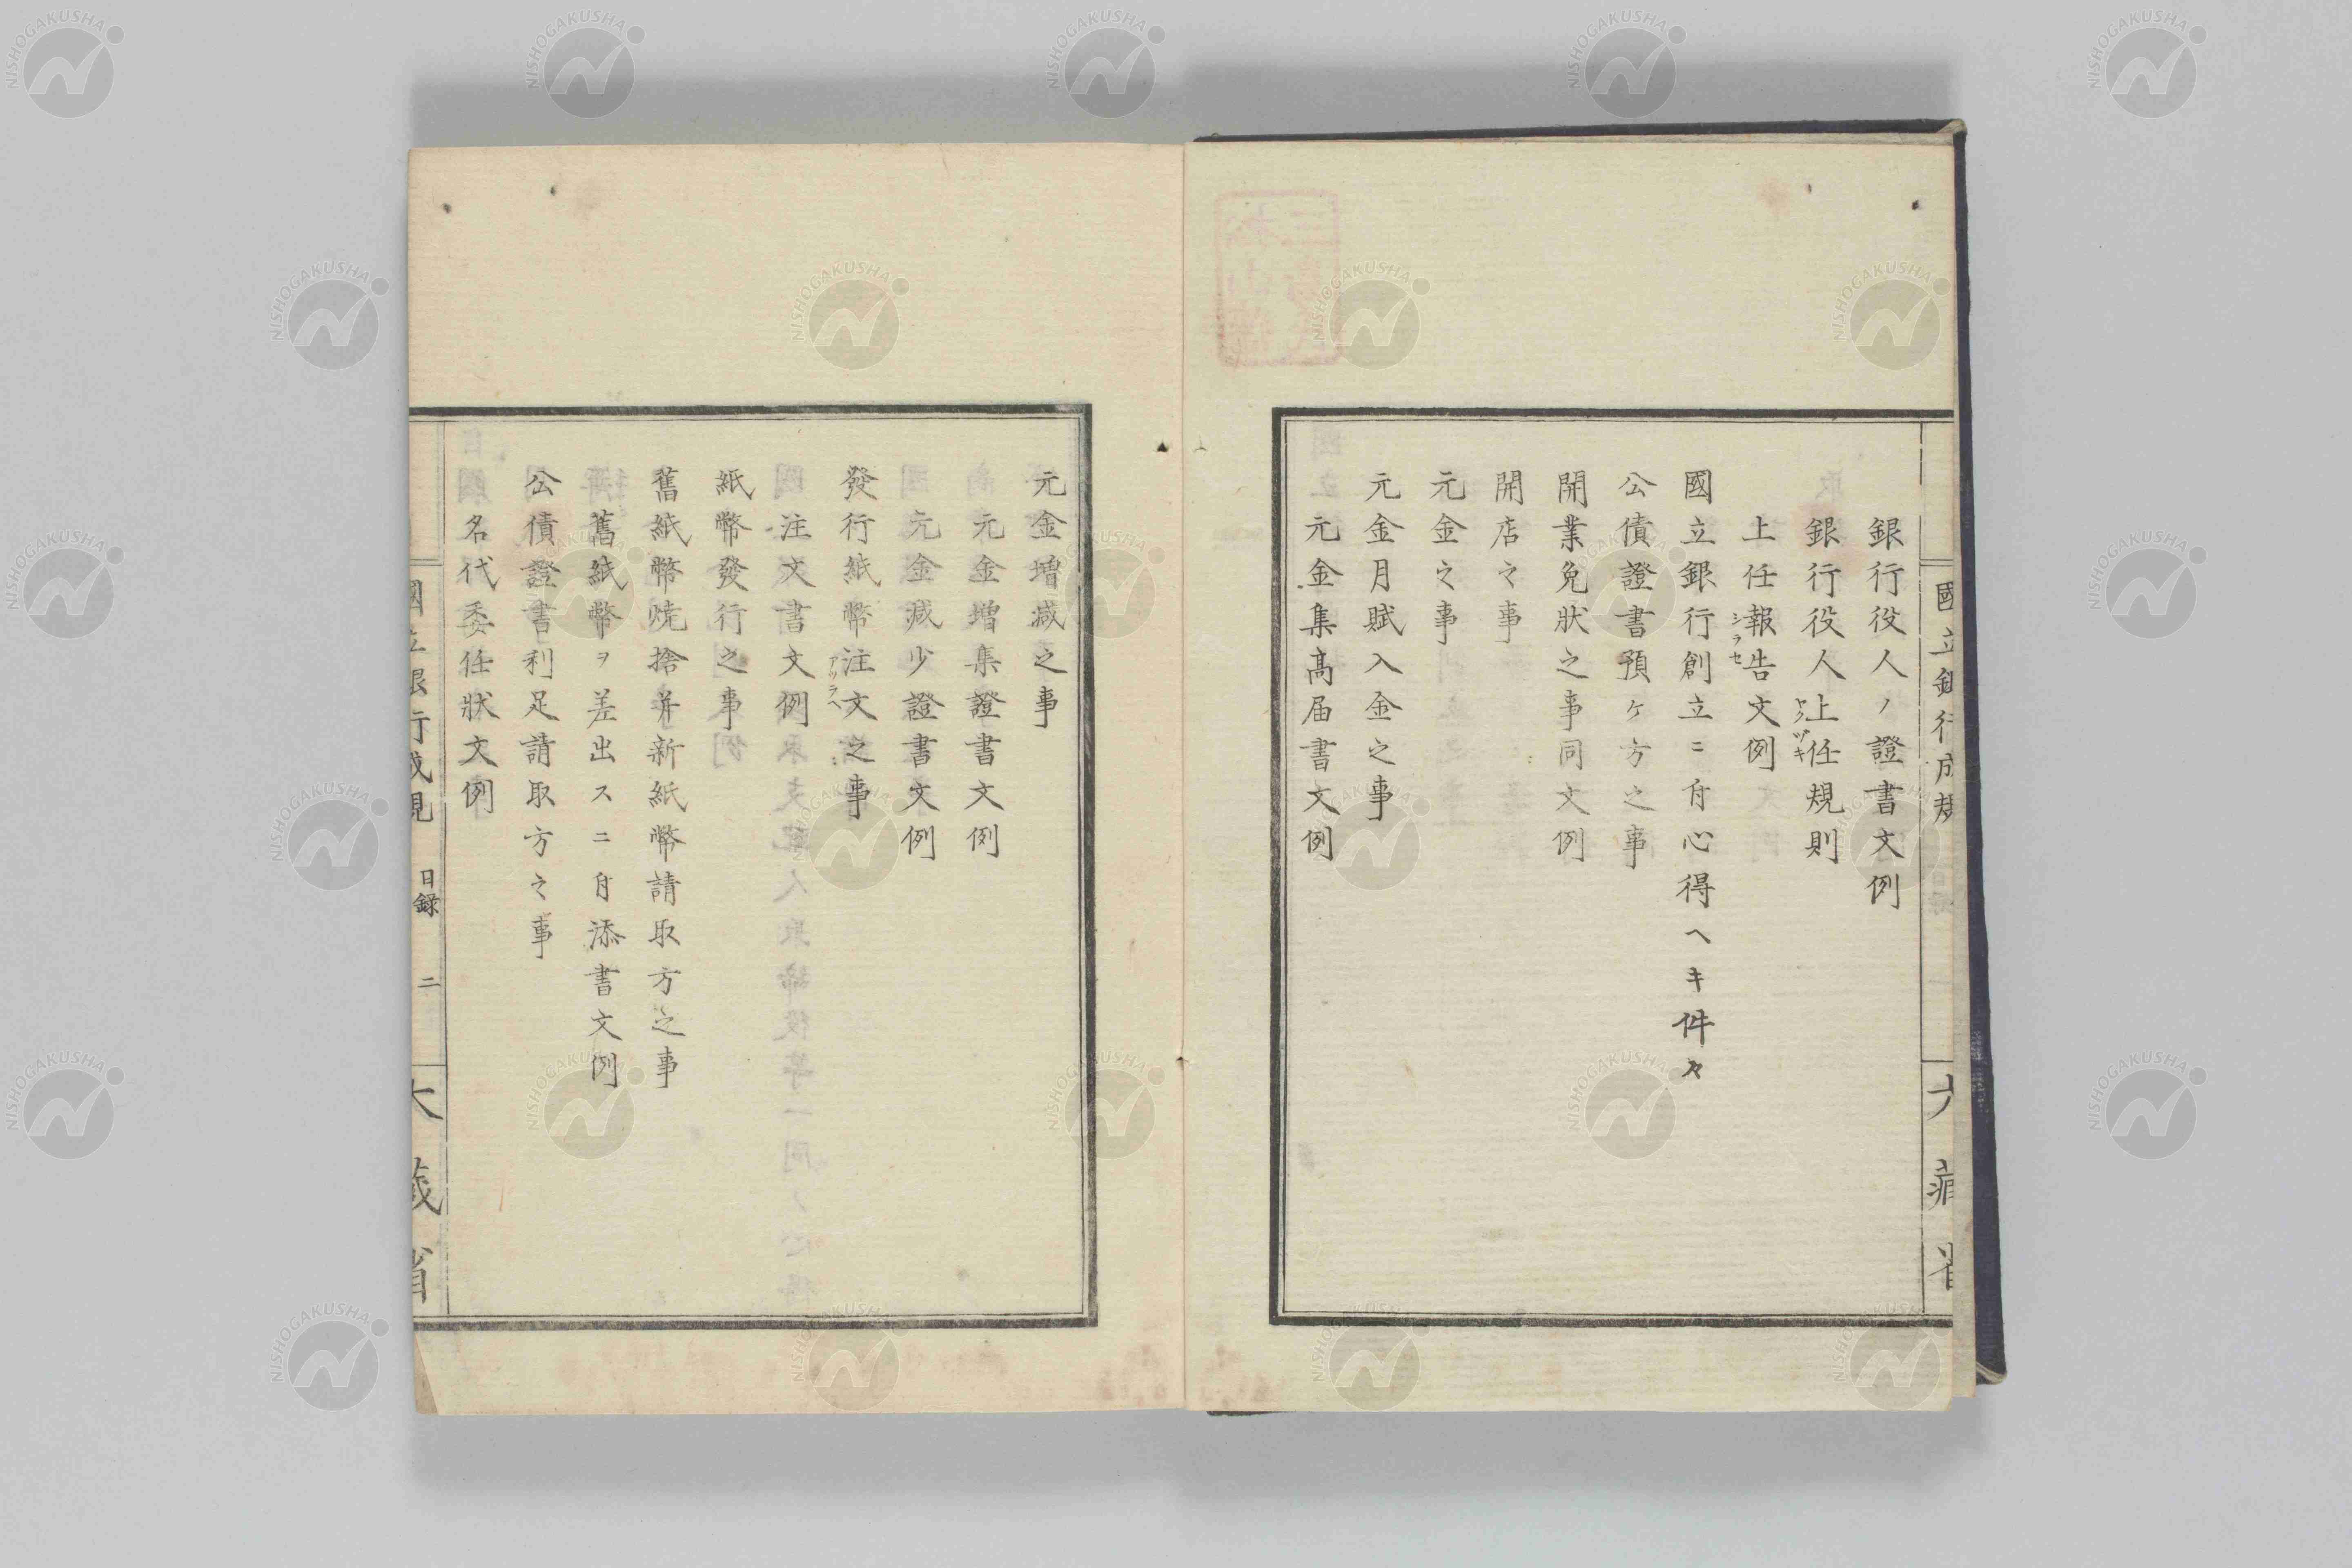 銀行役人ノ證書文例
銀行役人上任規則
ヤクツキ
上任報告文例
シラセ
國立銀行創立ニ付心得ヘキ件々
公債證書預ケ方之事
開業免狀之事同文例
開店之事
元金之事
元金月賦入金之事
元金集髙届書文例
元金増减之事
元金増集證書文例
元金减少證書文例
發行紙幣注文之事
アツラヘ
注文書文例
紙幣發行之事
舊紙幣焼捨并新紙幣請取方之事
舊紙幣ヲ差出スニ付添書文例
公債證書利足請取方之事
名代委任狀文例
國立銀行成規 目録 二
大藏省
NISHOGAKUSHA